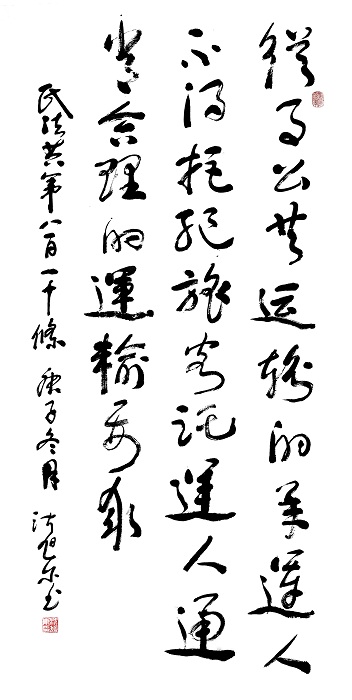 從事公共运輸的承運人
不得拒絕旅客託運人通
常合理的運輸要求
民法典第八百一十條 庚子冬月